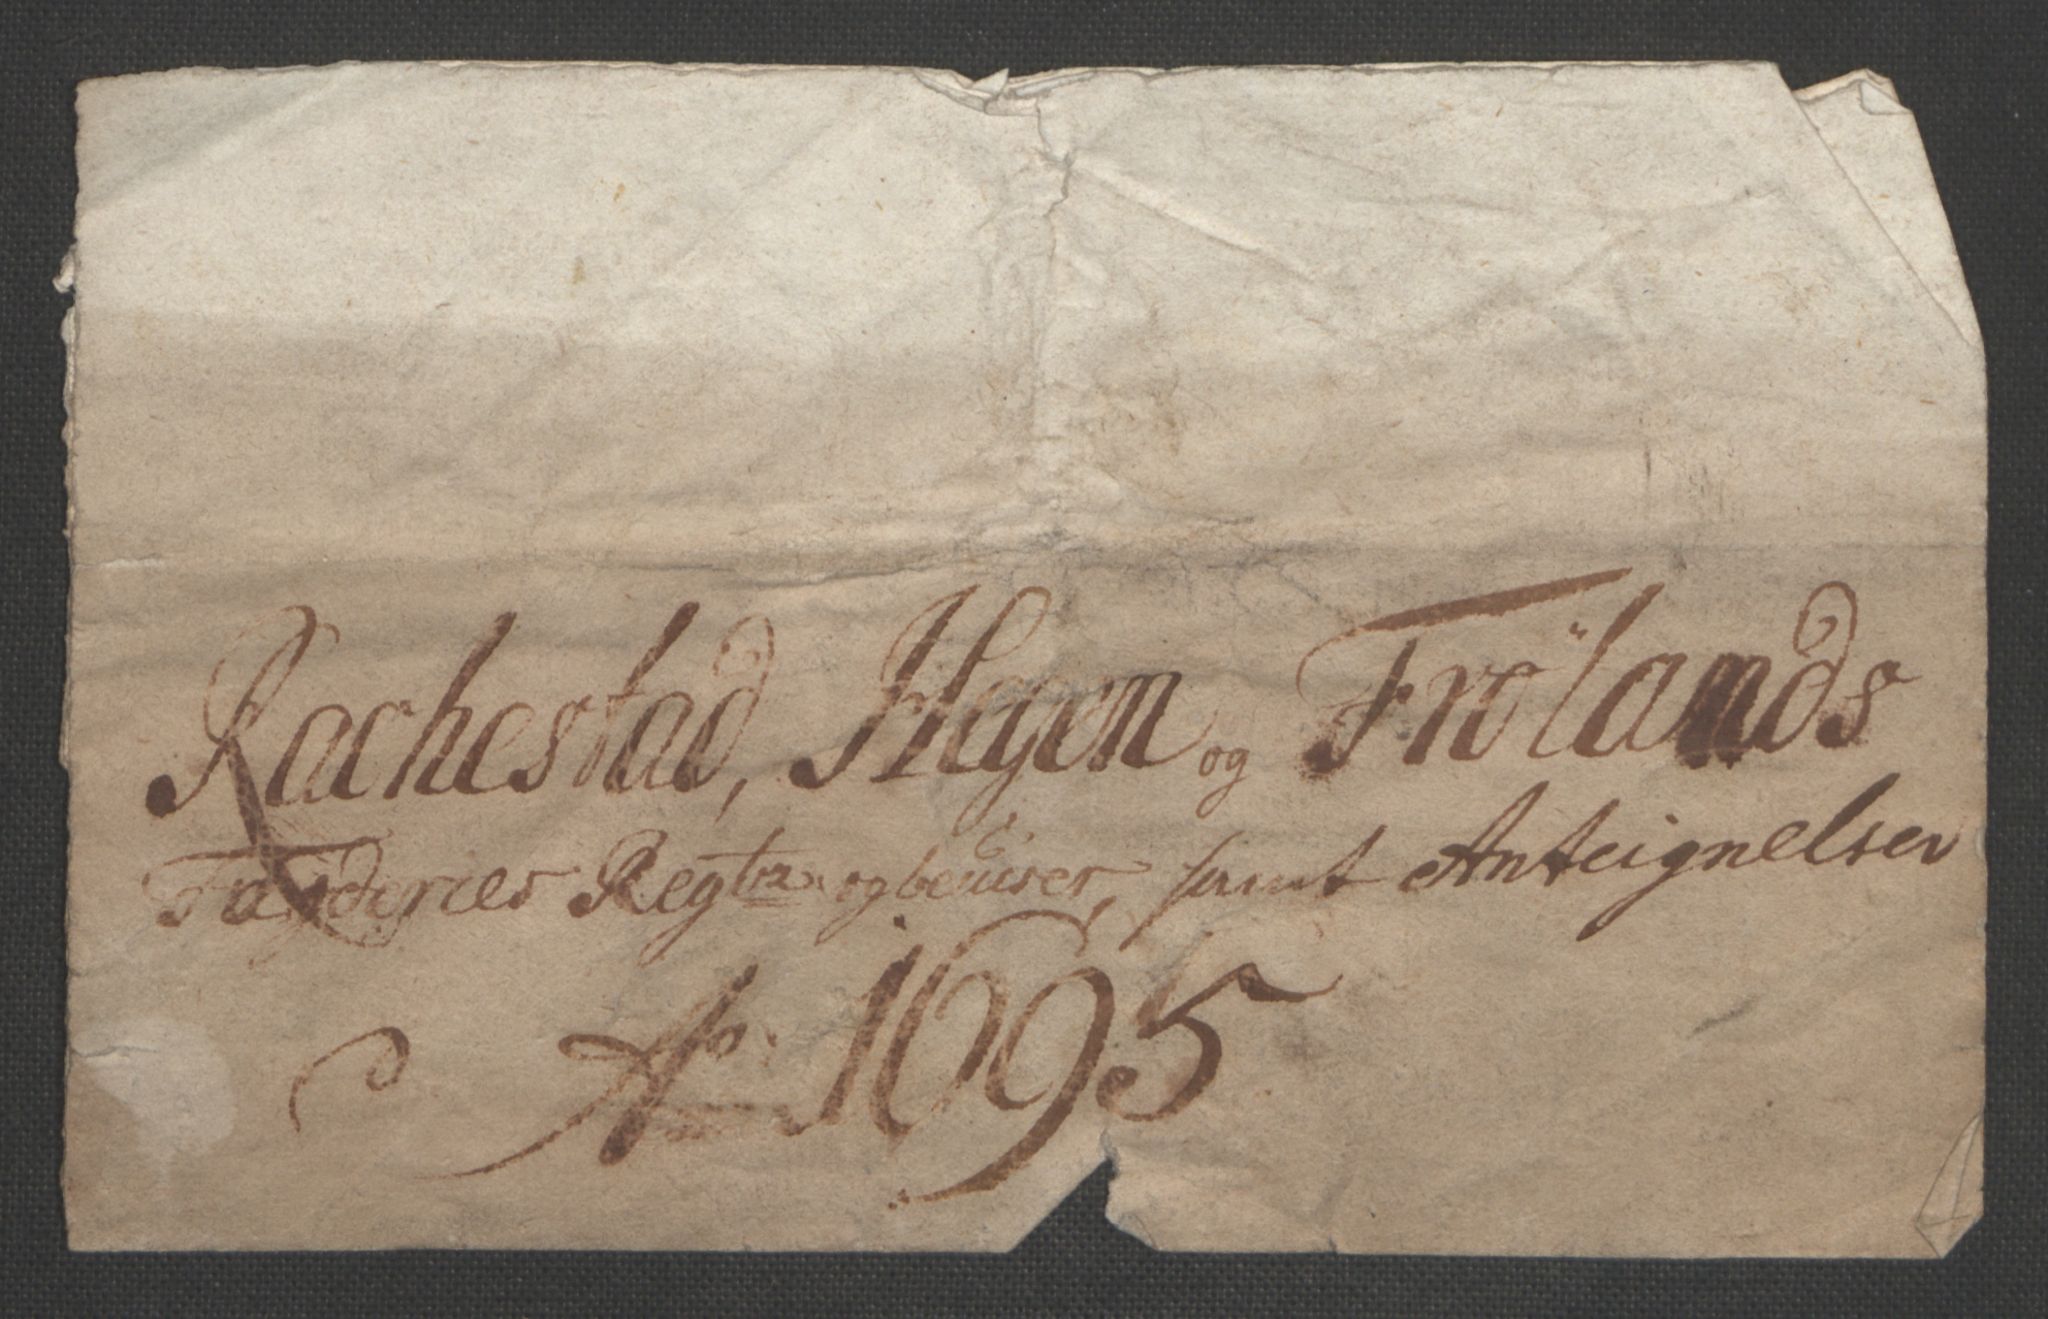 Rachestad, Hegen og Frölands
Fogderies Regtr og beviser, samt Anteignelser
Ao: 1695